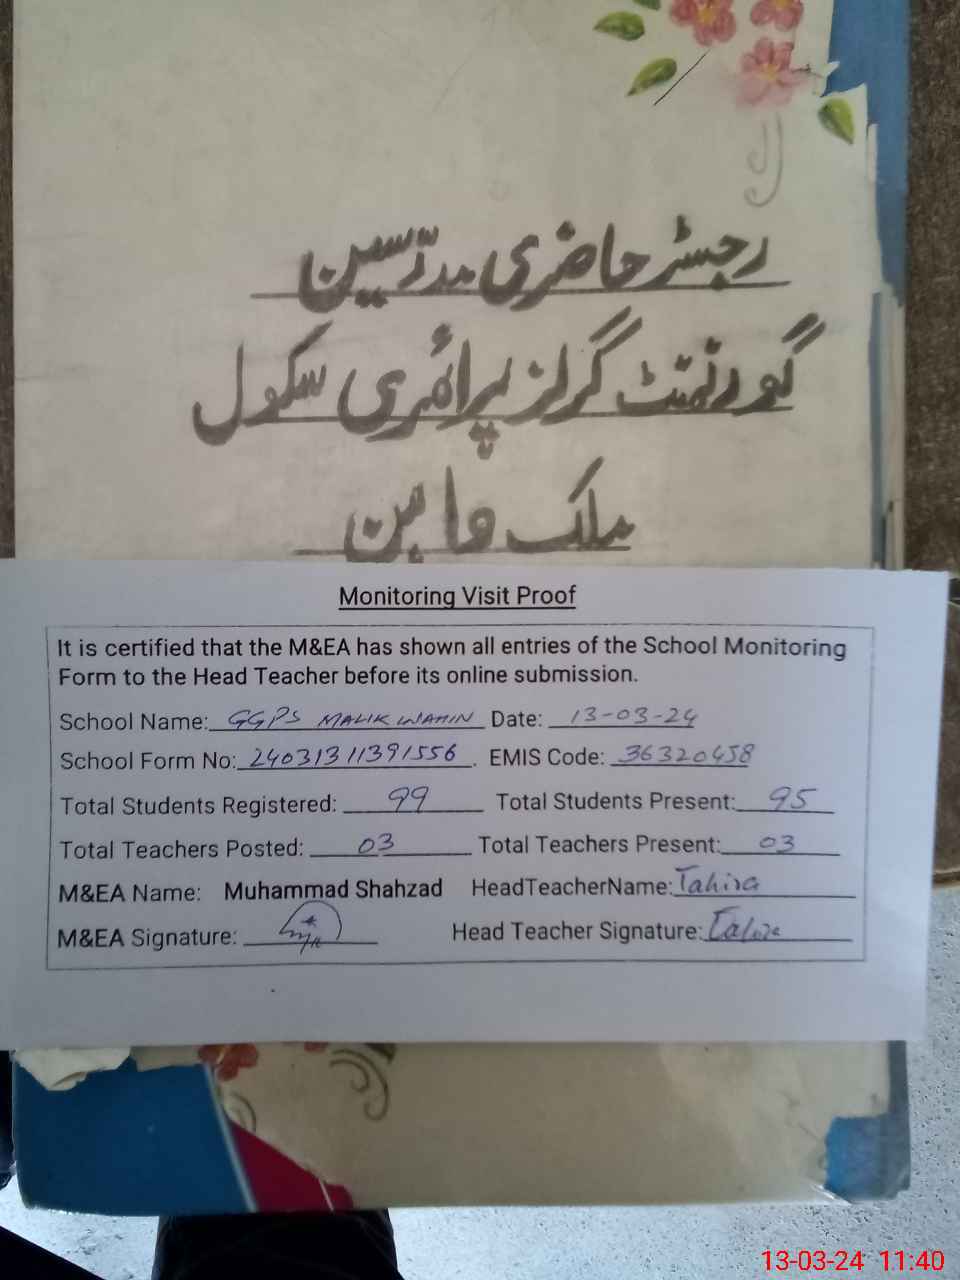 رجسٹر حاضری مدرسین
گورنمنٹ گرلز پرائمری سکول
ملک واہن
Monitoring Visit Proof
It is certified that the M&EA has shown all entries of the School Monitoring
Form to the Head Teacher before its online submission.
School Name: GGPS MALIK WAHIN Date: 13-03-24
School Form No: 24031311391556. EMIS Code: 36320458
Total Students Registered: 99 Total Students Present: 95
Total Teachers Posted: 03 Total Teachers Present: 03
M&EA Name: Muhammad Shahzad HeadTeacherName: Tahira
M&EA Signature: Head Teacher Signature: Tahira
13-03-24 11:40